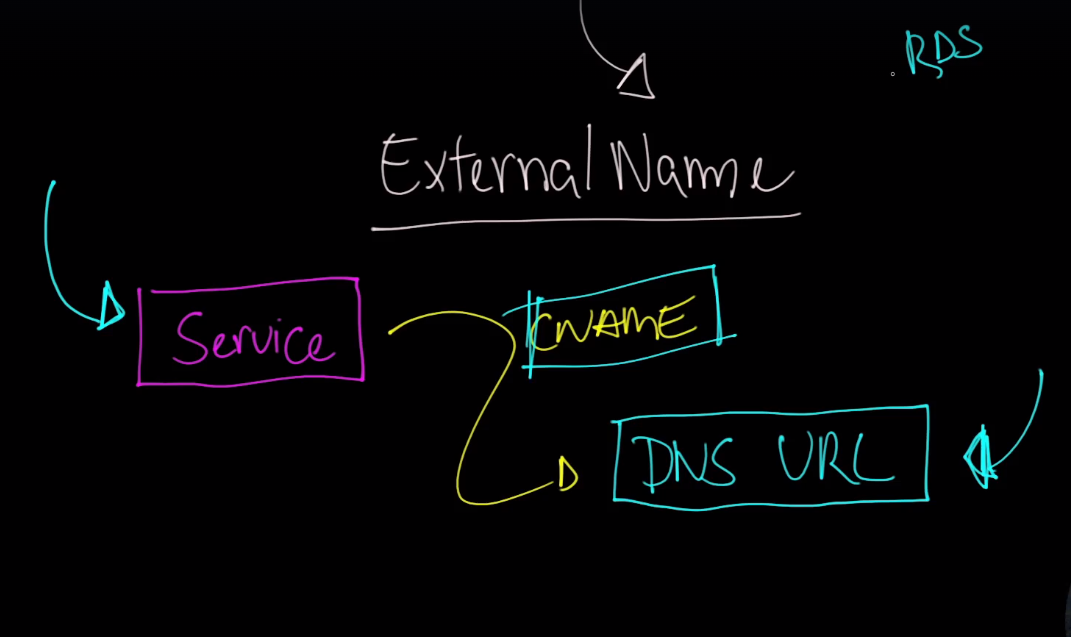 RDS
ExternalName
Service
CNAME
DNS URL